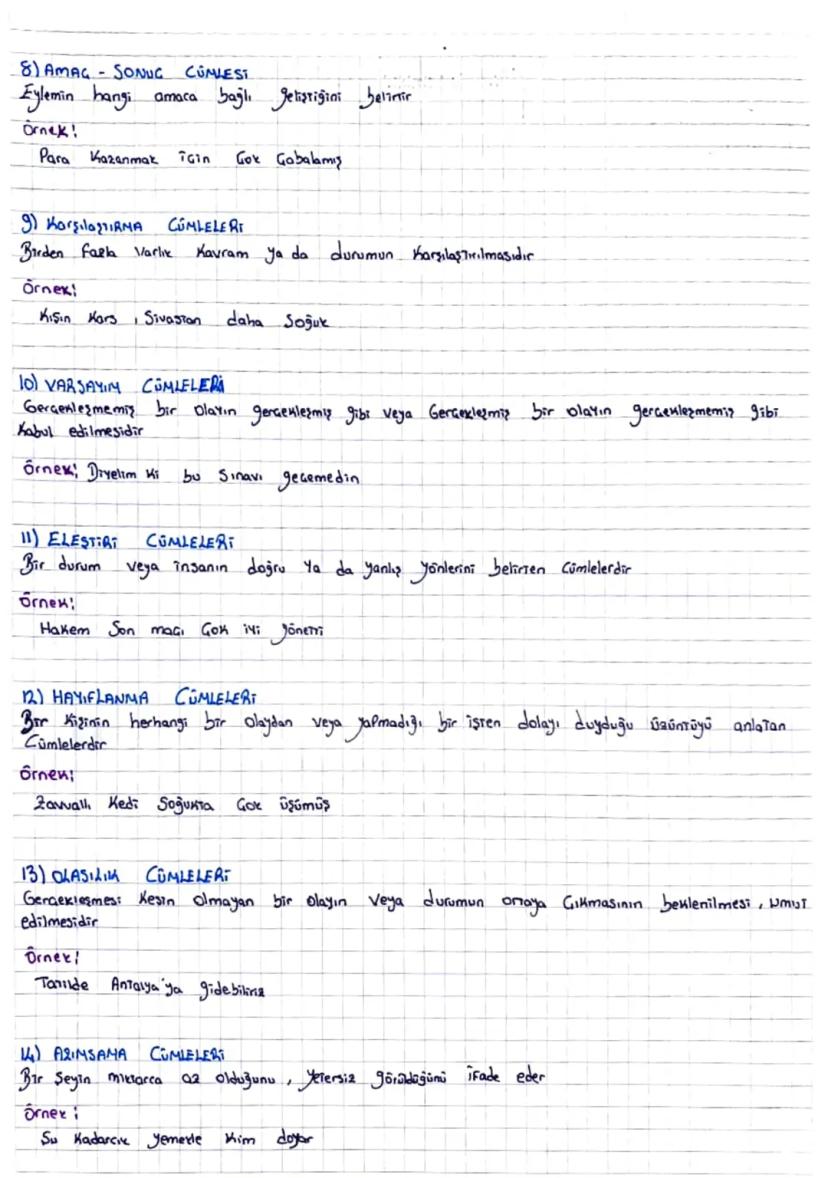 8) AMAÇ - SONUÇ CÜMLESİ
Eylemin hangi amaca bağlı geliştiğini belirtir
Örnek:
Para Kazanmak için Çok Çabalamış
9) KarşılaştıRMA CÜMLELERİ
Birden fazla Varlık Kavram ya da durumun Karşılaştırılmasıdır
Örnek:
Kışın Kars, Sivastan daha Soğuk
10) VARSAYIM CÜMLELERİ
Gerçekleşmemiş bir olayın gerçekleşmiş gibi veya Gerçekleşmiş bir olayın gerçekleşmemiş gibi
Kabul edilmesidir
Örnek: Diyelim ki bu Sınavı geçemedin
11) ELEŞTİRİ CÜMLELERİ
Bir durum veya insanın doğru ya da yanlış yönlerini belirten Cümlelerdir
Örnek:
Hakem Son maçı Çok iyi yönetti
12) HAYIFLANMA CÜMLELERİ
Bir Kişinin herhangi bir olaydan veya yapmadığı bir işten dolayı duyduğu üzüntüyü anlatan
Cümlelerdir
Örnek:
Zavallı Kedi Soğukta Çok üşümüş
13) OLASILIK CÜMLELERİ
Gerçekleşmesi Kesin olmayan bir olayın veya durumun ortaya Çıkmasının beklenilmesi, umut
edilmesidir
Örnek:
Tatilde Antalya'ya gidebiliriz
14) AZIMSAMA CÜMLELERİ
Bir Şeyin miktarca az olduğunu, yetersiz görüldüğünü ifade eder
Örnek:
Şu Kadarcık yemekle Kim doyar